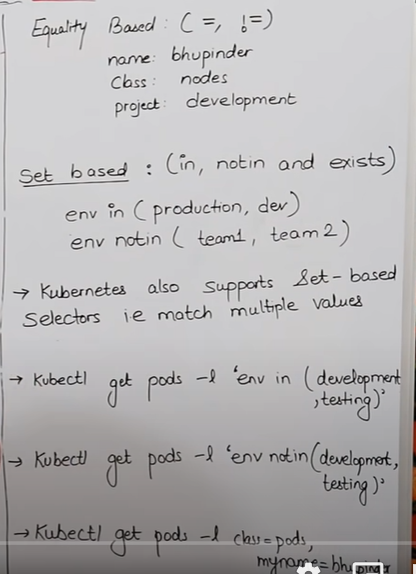 Equality Based : ( =, != )
name: bhupinder
Class : nodes
project: development
Set based : (in, notin and exists)
env in ( production, dev)
env notin ( team1, team2 )
→ Kubernetes also supports Set-based
Selectors ie match multiple values
→ Kubectl get pods -l 'env in (development
,testing)'
→ Kubectl get pods -l 'env notin (development,
testing)'
→ Kubectl get pods -l class=pods,
myname=bhupinder